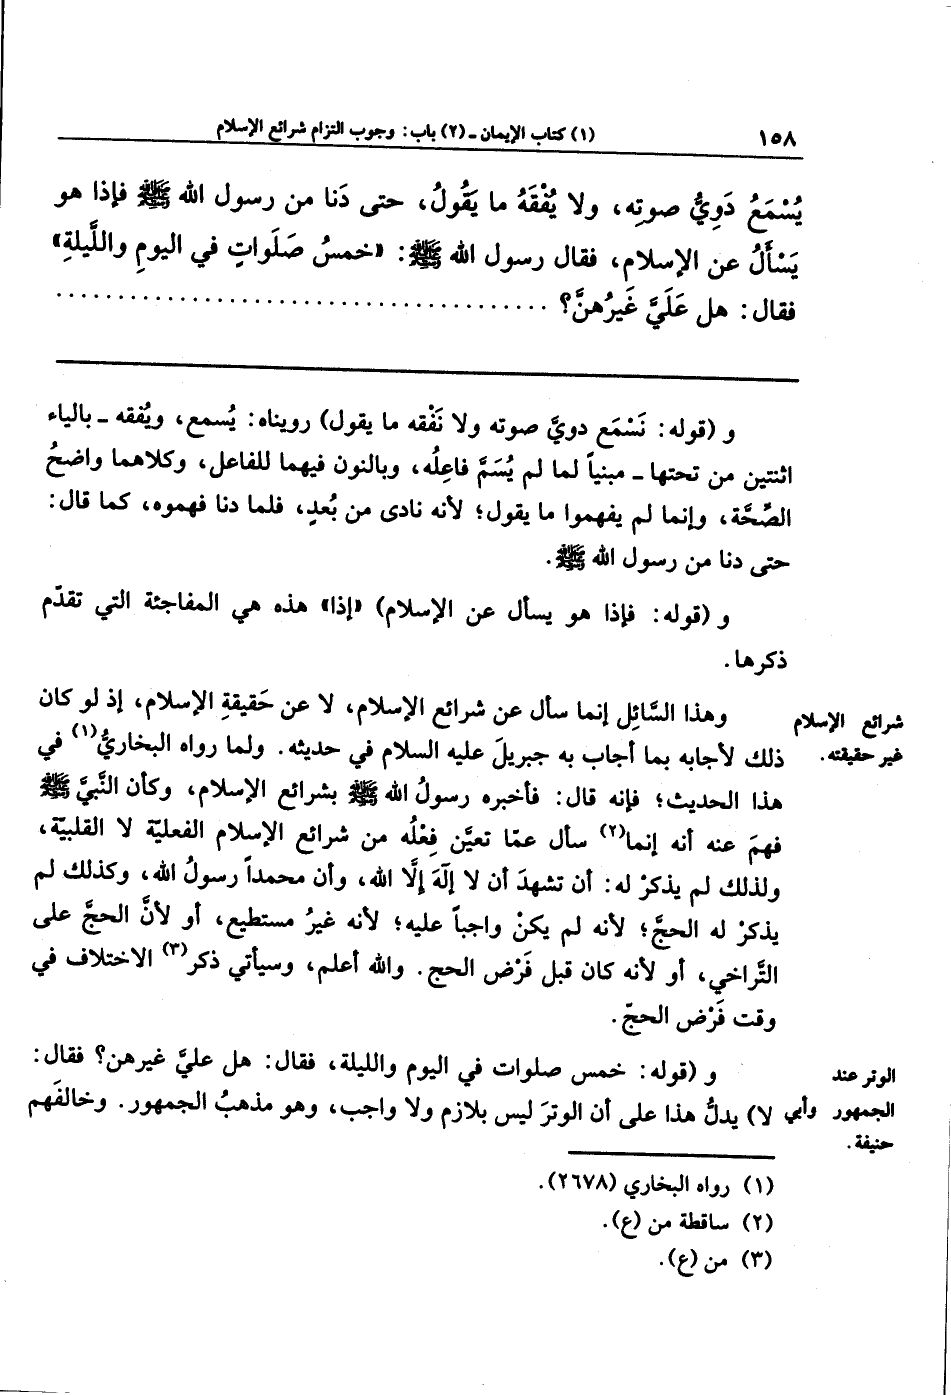 ١٥٨
(١) كتاب الإيمان ـ (٢) باب: وجوب التزام شرائع الإسلام
يُسْمَعُ دَوِيُّ صوتِه، ولا يُفْقَهُ ما يَقُولُ، حتى دَنا من رسول الله ﷺ فإذا هو
يَسْأَلُ عن الإسلام، فقال رسول الله ﷺ: «خمسُ صَلَواتٍ في اليومِ واللَّيلةِ»
فقال: هل عَلَيَّ غَيرُهنَّ؟ ........................................
و (قوله: نَسْمَع دويَّ صوته ولا نَفْقه ما يقول) رويناه: يُسمع، ويُفقه ـ بالياء
اثنتين من تحتها ـ مبنياً لما لم يُسَمَّ فاعِلُه، وبالنون فيهما للفاعل، وكلاهما واضحُ
الصِّحَّة، وإنما لم يفهموا ما يقول؛ لأنه نادى من بُعدٍ، فلما دنا فهموه، كما قال:
حتى دنا من رسول الله ﷺ.
و (قوله: فإذا هو يسأل عن الإسلام) «إذا» هذه هي المفاجئة التي تقدّم
ذكرها.
وهذا السَّائِل إنما سأل عن شرائع الإسلام، لا عن حَقيقةِ الإسلام، إذ لو كان
شرائع الإسلام
ذلك لأجابه بما أجاب به جبريلَ عليه السلام في حديثه. ولما رواه البخاريُّ(١) في
غير حقيقته.
هذا الحديث؛ فإنه قال: فأخبره رسولُ الله ﷺ بشرائع الإسلام، وكأن النَّبيَّ ﷺ
فهمَ عنه أنه إنما(٢) سأل عمّا تعيَّن فِعْلُه من شرائع الإسلام الفعليّة لا القلبيّة،
ولذلك لم يذكرْ له: أن تشهدَ أن لا إلٰهَ إلَّا الله، وأن محمداً رسولُ الله، وكذلك لم
يذكرْ له الحجَّ؛ لأنه لم يكنْ واجباً عليه؛ لأنه غيرُ مستطيع، أو لأنَّ الحجَّ على
التَّراخي، أو لأنه كان قبل فَرْض الحج. والله أعلم، وسيأتي ذكر(٣) الاختلاف في
وقت فَرْض الحجّ.
و (قوله: خمس صلوات في اليوم والليلة، فقال: هل عليَّ غيرهن؟ فقال:
الوتر عند
لا) يدلُّ هذا على أن الوترَ ليس بلازم ولا واجب، وهو مذهبُ الجمهور. وخالفَهم
الجمهور وأبي
حنيفة.
(١) رواه البخاري (٢٦٧٨).
(٢) ساقطة من (ع).
(٣) من (ع).